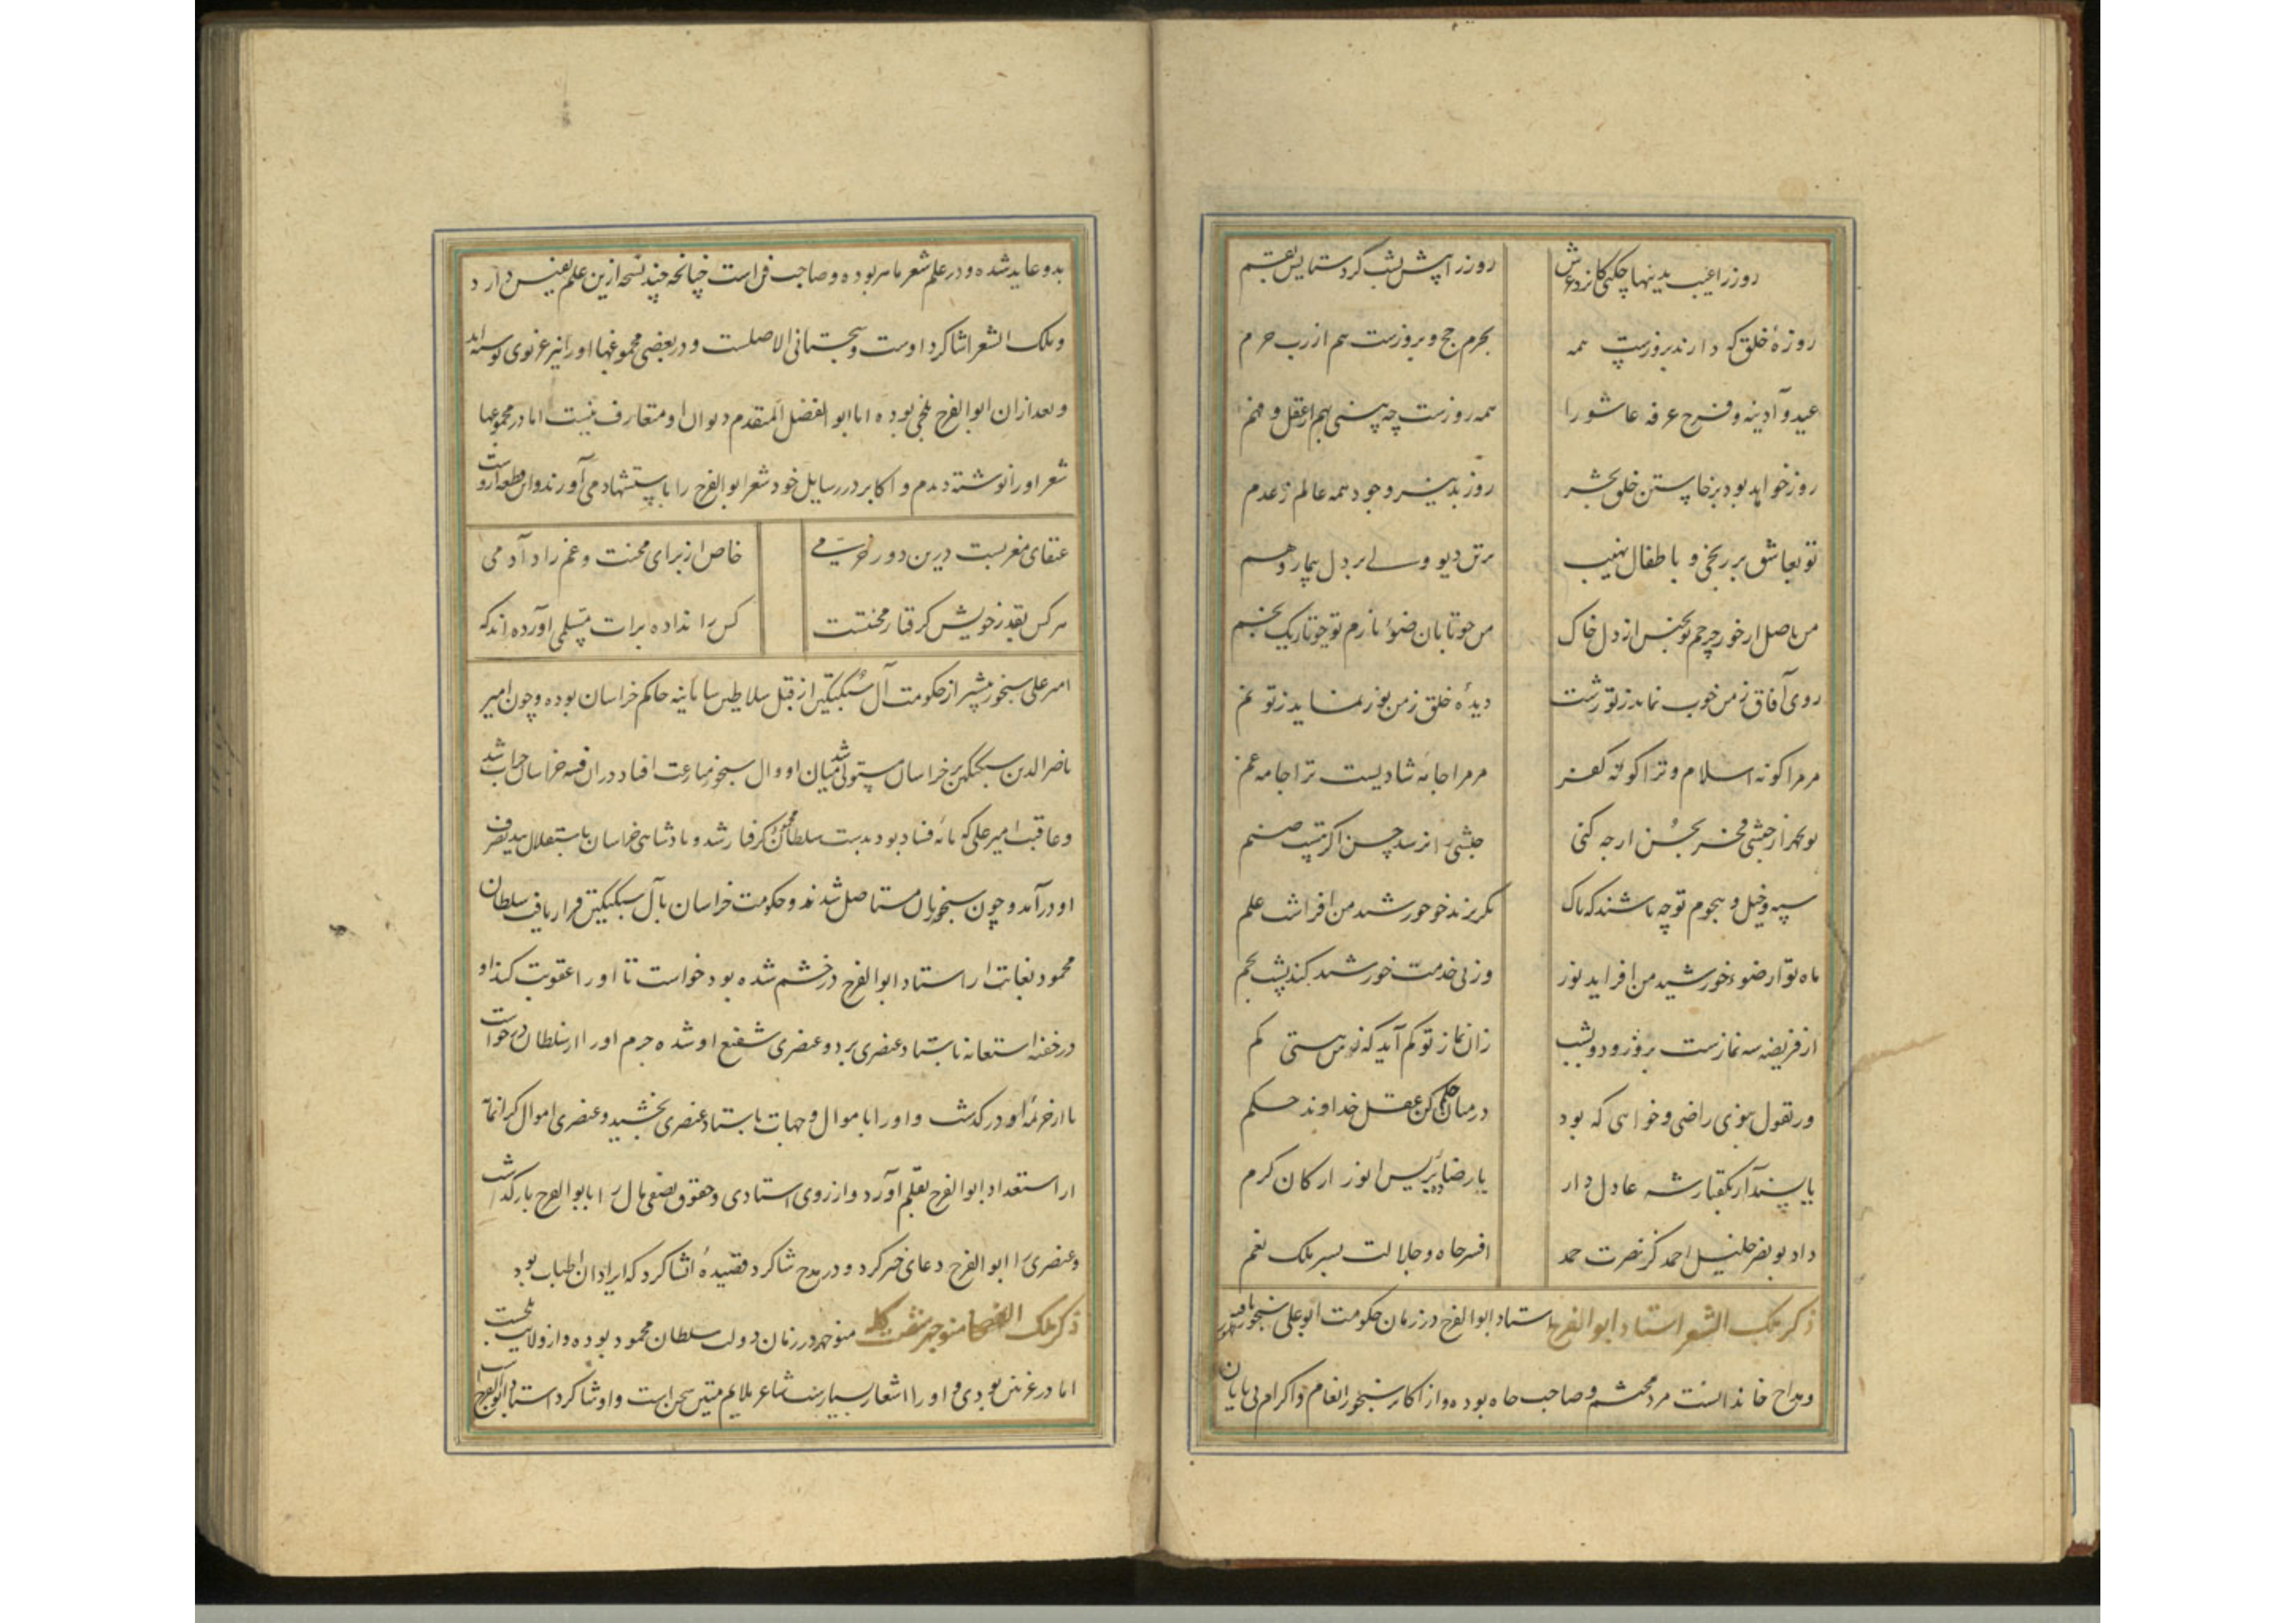 روز را عیب بدینها چکنی کایزد عرش روز را پیش شب کرد ستایش بقسم
روزهٔ خلق که دارند بروزست همه بحرم حج و بروزست هم از رب حرم
عید و آدینه و فرخ عرفه عاشورا همه روزست چه بینی بهم از عقل و فهم
روز خواهد بود برخاستن خلق بحشر روز بد نیز وجود همه عالم ز عدم
تو بعاشق بر رنجی و باطفال نهیب برتن دیو ولی بر دل بیمار وهم
من باصل از خور چرخم تو بجنس از دل خاک من چو تابان ضوء نارم تو چو تاریک بخم
روی آفاق ز من خوب نماید ز تو زشت دیدهٔ خلق ز من نور نماید ز تو نم
مر مرا کونه اسلام و ترا کونه کفر مر مرا جامه شادیست ترا جامه غم
تو بچهر از حبشی فخر بحسن ارچه کنی حبشی را نرسد حسن اکر هست صنم
سپه و خیل و نجوم تو چه باشند که پاک بکریزند چو خورشید من افراشت علم
ماه تو از ضوء خورشید من افزاید نور وز پی خدمت خورشید کند پشت بخم
از فریضه سه نمازست بروز و دو بشب زان نماز تو کم آید که تو بیش هستی کم
ور بقول نه‌ای راضی و خواهی که بود در میان حکم کن عقل خداوند حکم
یا پسند آر بکفتار شه عادل دار یا رضا ده برئیس الوزرا کان کرم
داد بونصر خلیل احمد کز نصرت حمد افسر جاه و جلالت بسر ملک نعم
ذکر ملک الشعر استاد ابوالفرج استاد ابوالفرج در زمان حکومت ابوعلی سنجور یافته ظهور
و مداح خاندانست مرد محتشم و صاحب جاه بوده و از اکابر سنجور انعام و اکرام بی پایان
بدو عاید شده و در علم شعر ماهر بوده و صاحب فن است چنانچه چند نسخه ازین علم نفیس دارد
و ملک الشعرا شاکرد اوست و سجستانی الاصلست و در بعضی مجموعها او را نیز غزنوی نوشته‌اند
و بعد از ان ابوالفرج بلخی بوده اما ابوالفضل المتقدم دیوان او متعارف نیست اما در مجموعها
شعر او را نوشته دیدم و اکابر در رسایل خود شعر ابوالفرج را باستشهاد می‌آورند و این قطعه ازوست
عنقای مغربست درین دور خرمی خاص از برای محنت و غم زاد آدمی
هر کس بقدر خویش کرفتار محنتست کس را نداده برات مسلمی آورده‌اند که
امیر علی سنجور پیش از حکومت آل سبکتکین از قبل سلاطین سامانیه حاکم خراسان بوده و چون امیر
ناصرالدین سبکتکین بر خراسان مستولی شد میان او و آل سنجور منازعت افتاد در ان فتنه خراسان خراب شد
و عاقبت امیر علی که مایه فساد بود بدست سلطان محمود کرفتار شد و پادشاهی خراسان باستقلال بید تصرف
او درآمد و چون سنجوریان مستاصل شدند و حکومت خراسان بآل سبکتکین قرار یافت سلطان
محمود بغایت از استاد ابوالفرج در خشم شده بود خواست تا او را عقوبت کند او
در خفیه استعانه باستاد عنصری برد و عنصری شفیع او شده جرم او را از سلطان درخواست
تا از جرمه او درکذشت و او را با موال و جهات باستاد عنصری بخشید و عنصری اموال کرانمایه
از استعداد ابوالفرج بقلم آورد و از روی استادی و حقوق نصفی مال را بابوالفرج بازکذاشت
و عنصری را ابوالفرج دعای خیر کرد و در مدح شاکرد قصیدهٔ انشا کرد که ایراد ان اطناب بود
ذکر ملک الفصحا منوچهر شصت کله منوچهر در زمان دولت سلطان محمود بوده و از ولایت بلخست
اما در غزنین بودی و او را اشعار بسیارست شاعر ملایم متین سخن است و او شاکرد استاد ابوالفرج است